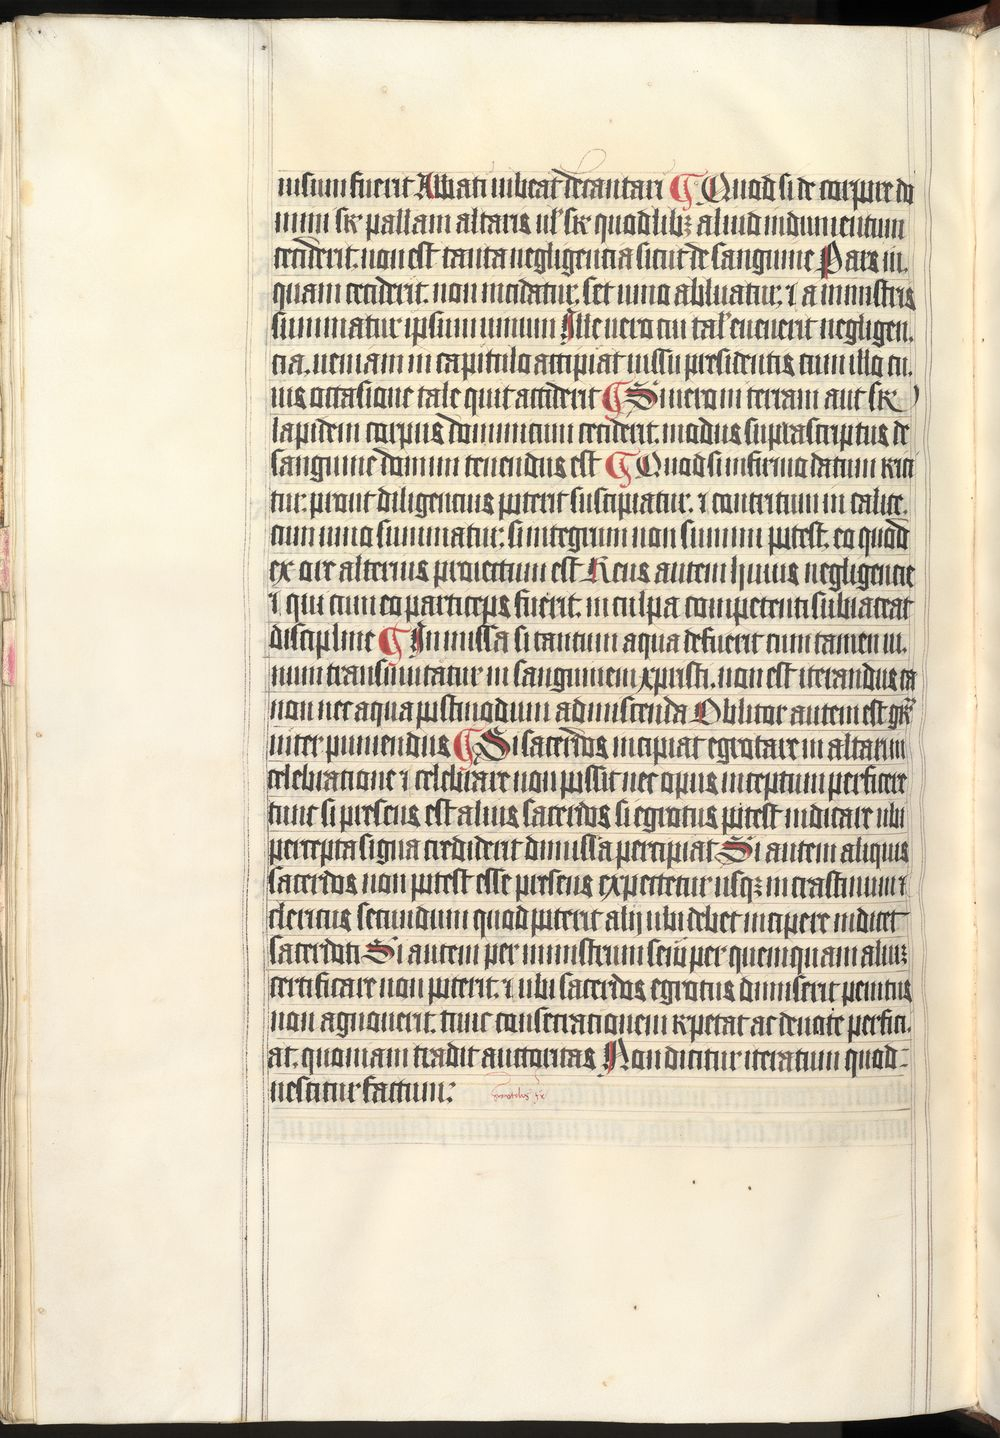 iussum fuerit Abbati iubeat decantari ¶ Quod si de corpore do
mini sr pallam altaris ul' sr quodlibꝫ aliud indumentum
ceciderit. non est tanta negligencia sicut de sanguine Pars in.
quam ceciderit. non incidatur. set uino abluatur. ⁊ a ministris
summatur ipsum uinum Ille uero cui tal' euenerit negligen.
cia. ueniam in capitulo accipiat iussu presidentis cum illo cu.
ius occasione tale quit acciderit ¶ Si uero in terram aut sr
lapidem corpus dominicum ceciderit. modus suprascriptus de
sanguine domini tenendus est ¶ Quod si infirmo datum reici
tur. prout diligencius poterit suscipiatur. ⁊ contritum in calice.
cum uino summatur. si integrum non summi potest. eo quod
ex ore alterius proiectum est Reus autem huius negligencie
⁊ qui cum eo particeps fuerit. in culpa competenti subiaceat
discipline ¶ In missa si tantum aqua defuerit cum tamen ui.
num transmutatur in sanguinem xpristi. non est iterandus ca
non nec aqua postmodum admiscenda Oblitor autem est gra
uiter puniendus ¶ Si sacerdos incipiat egrotare in altarium
celebratione ⁊ celebrare non possit nec opus inceptum perficere
tunc si presens est alius sacerdos si egrotus potest indicare ubi
percepta signa crediderit dimissa percipiat Si autem aliquis
sacerdos non potest esse presens expectetur usqꝫ in crastinum ⁊
clericus secundum quod poterit alij ubi debet incipere indicet
sacerdoti Si autem per ministrum seu per quemquam aliuꝫ
certificare non poterit. ⁊ ubi sacerdos egrotus dimiserit penitus
non agnouerit. tunc consecrationem repetat ac deuote perfici.
at. quoniam tradit auctoritas Non dicitur iteratum quod
nescitur factum: